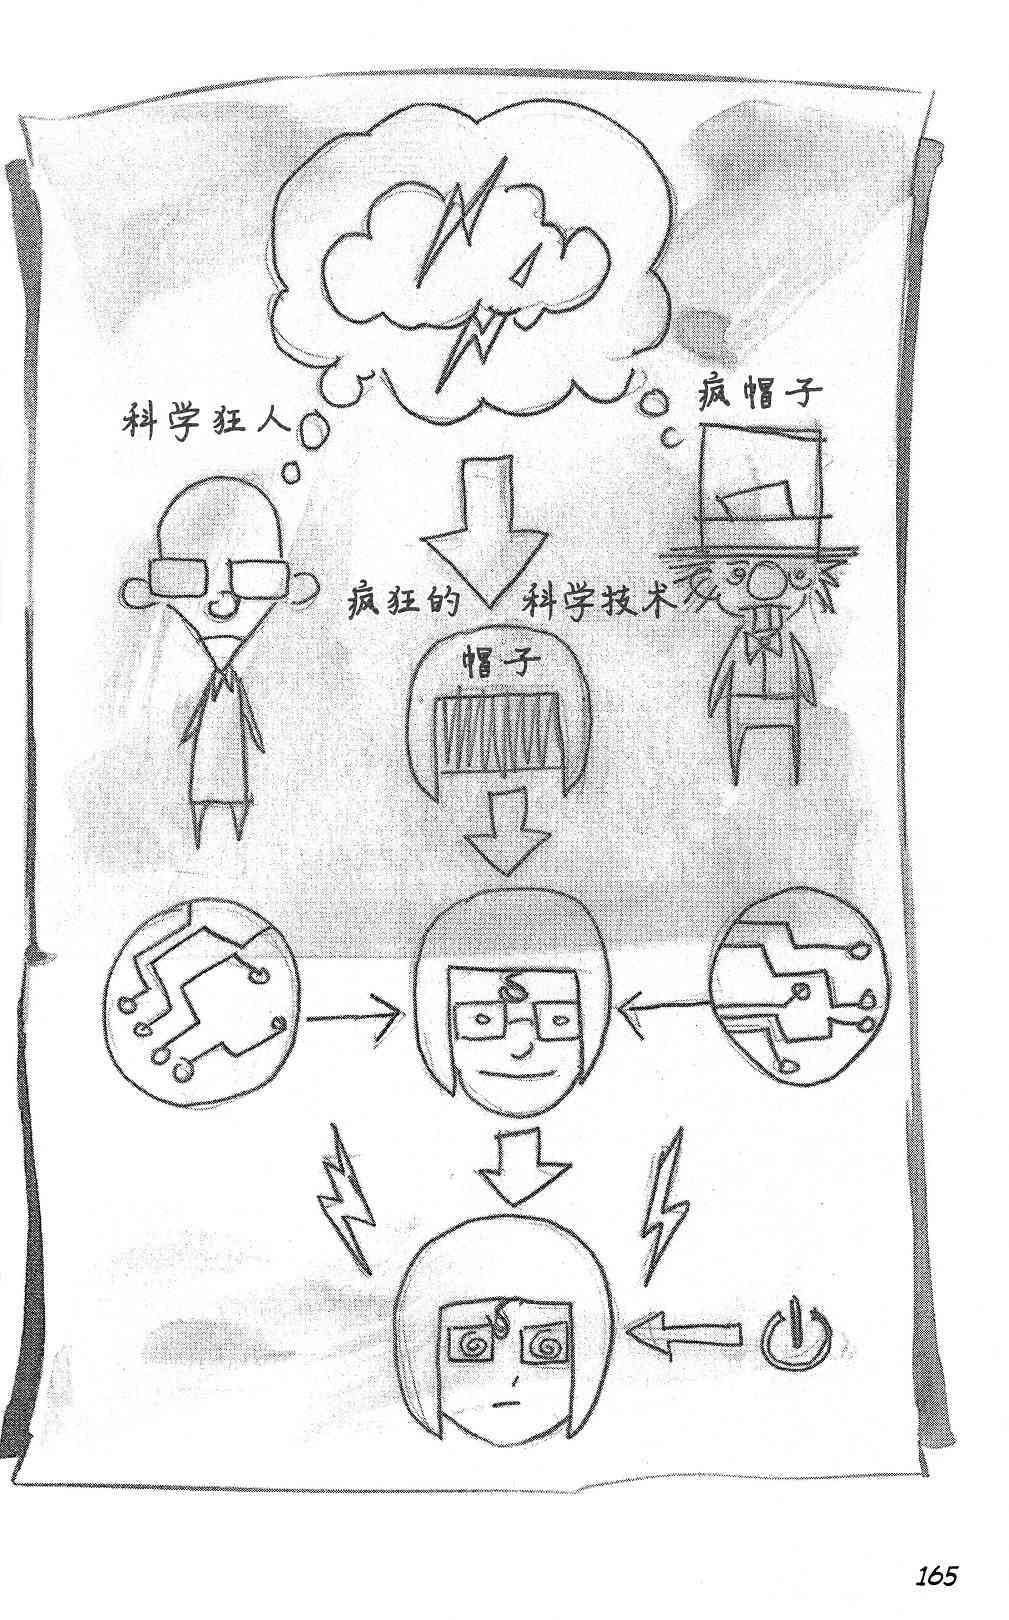 科学狂人
疯帽子
疯狂的 科学技术
帽子
165